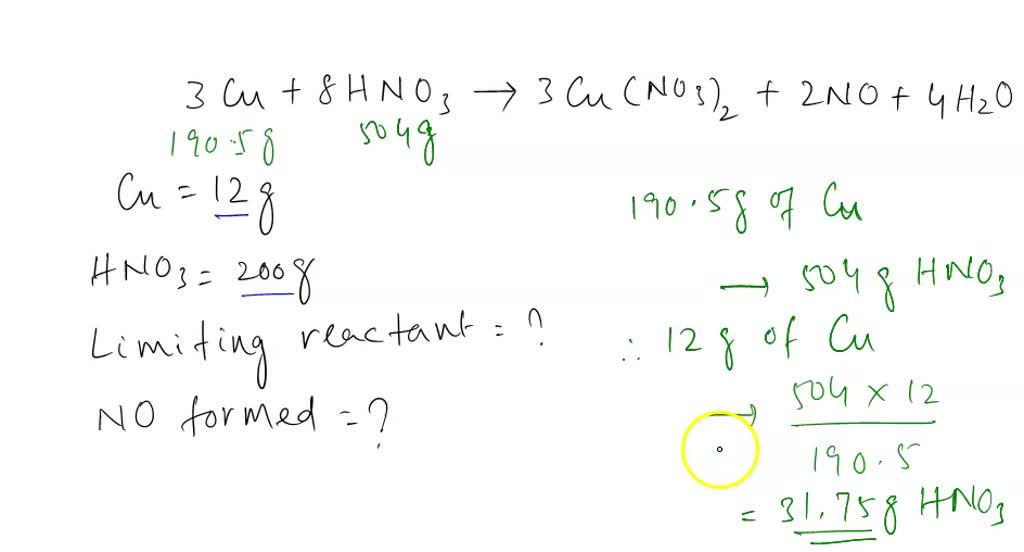 3 Cu + 8 HNO3 → 3 Cu (NO3)2 + 2NO + 4H2O
190.5g 504g
Cu = 12g
HNO3 = 200g
Limiting reactant = ?
NO formed = ?
190.5g of Cu
→ 504g HNO3
∴ 12g of Cu
→ 504 × 12
190.5
= 31.75g HNO3